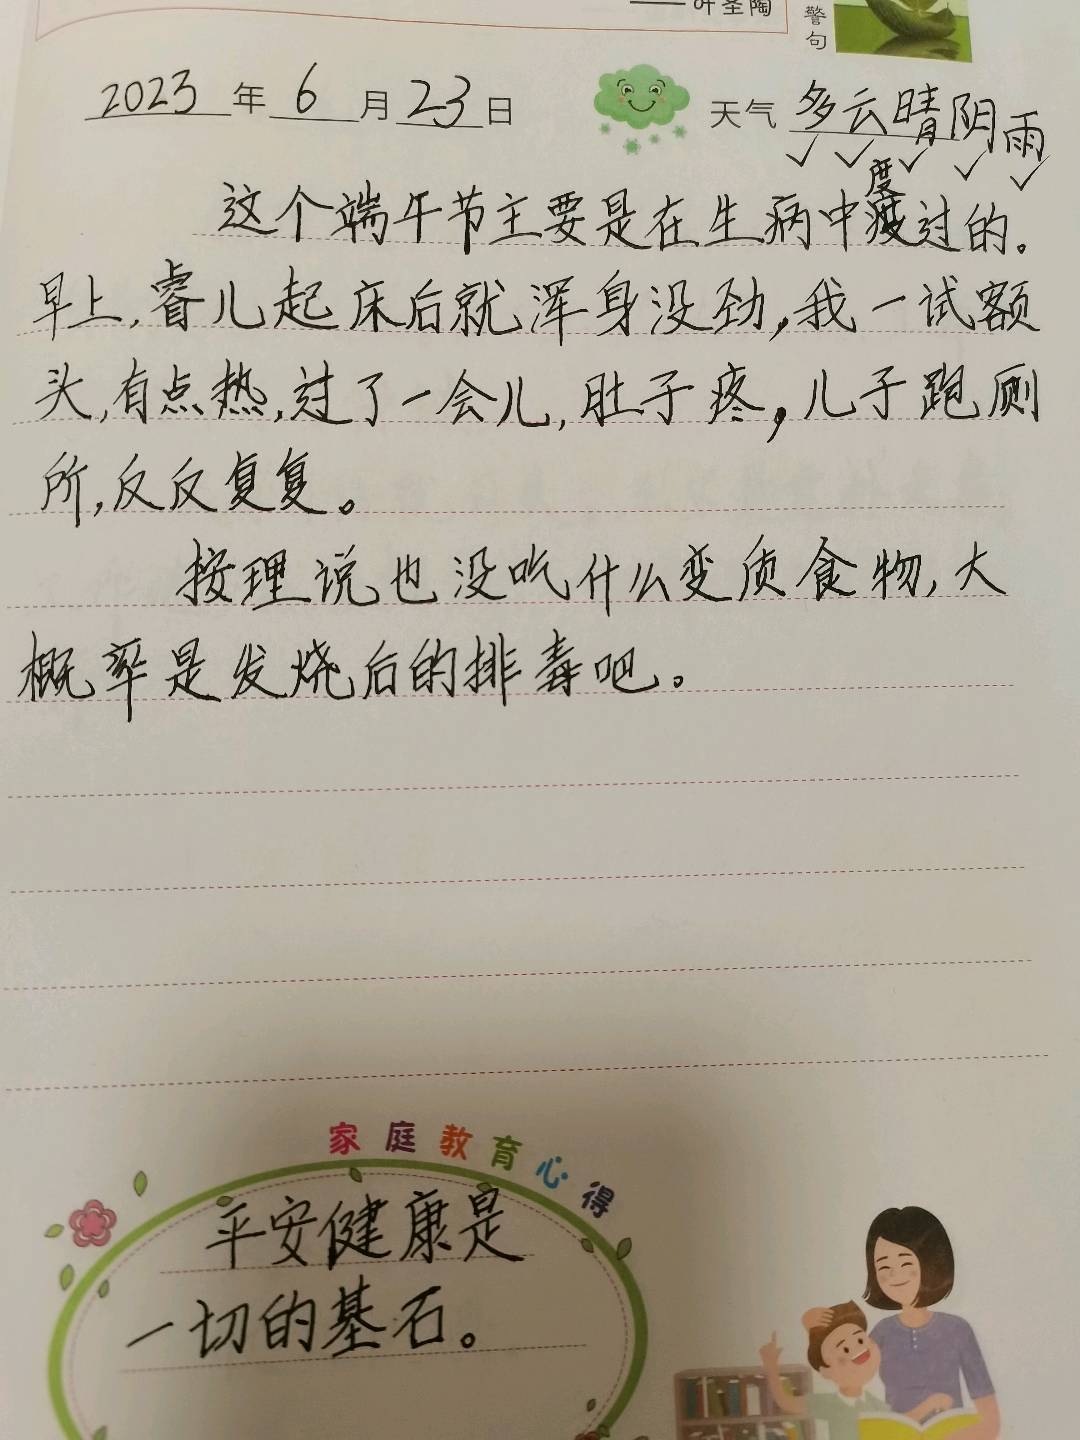 ——叶圣陶
警句
2023年6月23日 天气 多云晴阴雨
这个端午节主要是在生病中度过的。
早上,睿儿起床后就浑身没劲,我一试额
头,有点热,过了一会儿,肚子疼,儿子跑厕
所,反反复复。
按理说也没吃什么变质食物,大
概率是发烧后的排毒吧。
家庭教育心得
平安健康是
一切的基石。